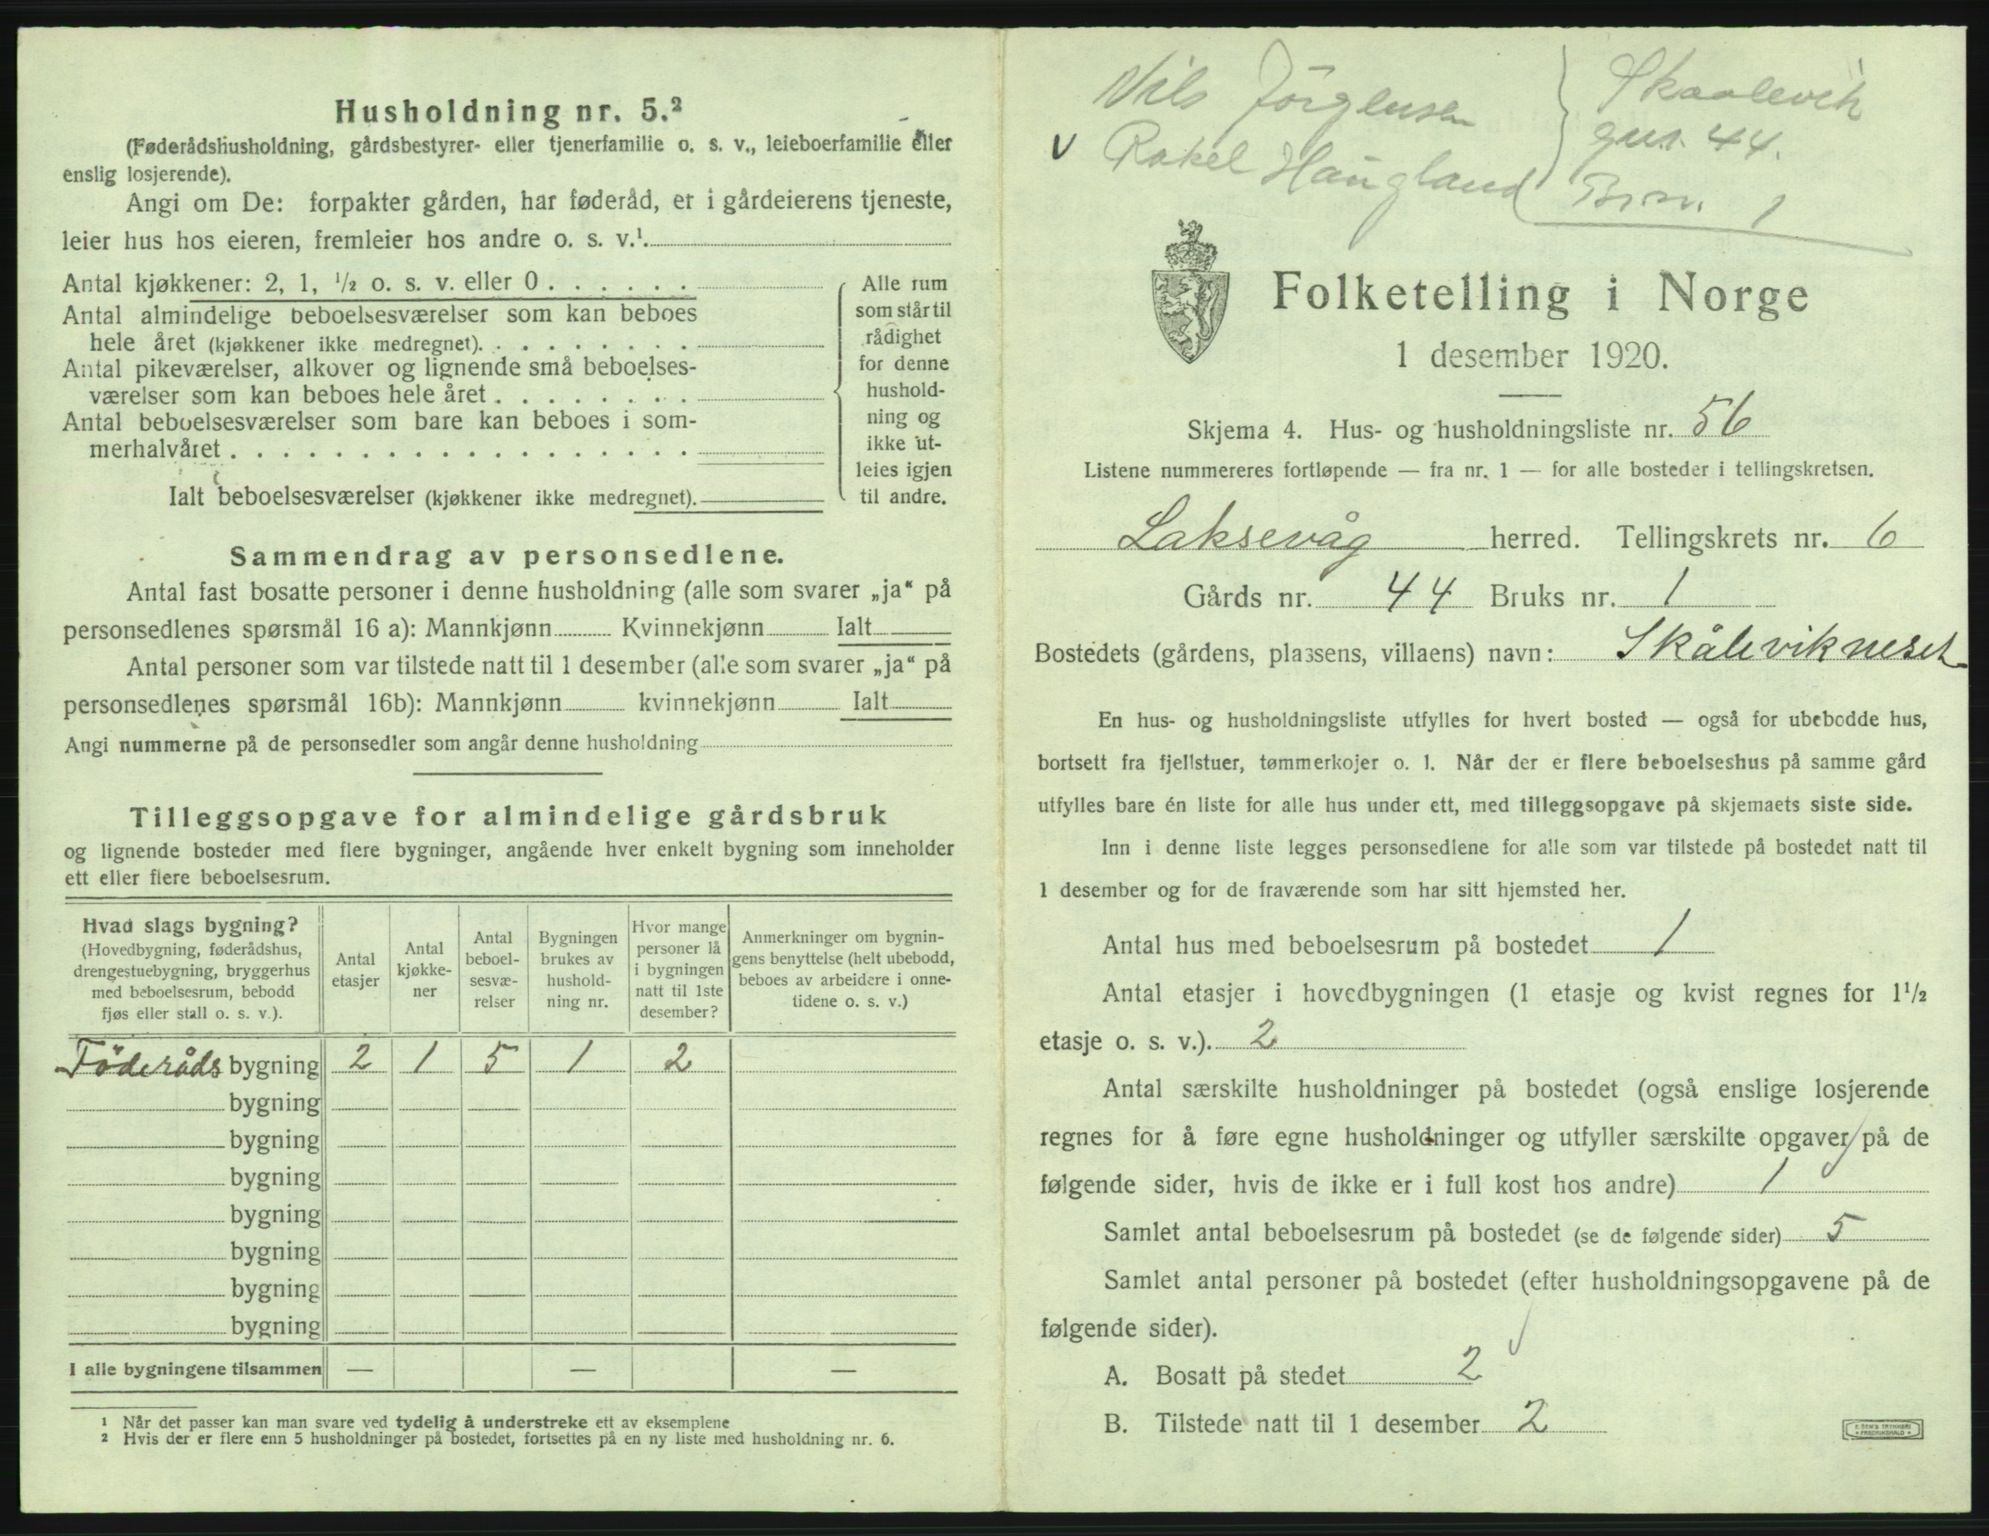 Husholdning nr. 5.²
(Føderådshusholdning, gårdsbestyrer- eller tjenerfamilie o. s. v., leieboerfamilie eller
enslig losjerende).
Angi om De: forpakter gården, har føderåd, er i gårdeierens tjeneste,
leier hus hos eieren, fremleier hos andre o. s. v.¹.
Antal kjøkkener: 2, 1, ¹/₂ o. s. v. eller 0 . . . . . .
Antal almindelige beboelsesværelser som kan beboes
hele året (kjøkkener ikke medregnet). . . . . . . . .
Antal pikeværelser, alkover og lignende små beboelses-
værelser som kan beboes hele året . . . . . . . .
Antal beboelsesværelser som bare kan beboes i som-
merhalvåret . . . . . . . . . . . . . . . . . .
Ialt beboelsesværelser (kjøkkener ikke medregnet).
Alle rum
som står til
rådighet
for denne
hushold-
ning og
ikke ut-
leies igjen
til andre.
Sammendrag av personsedlene.
Antal fast bosatte personer i denne husholdning (alle som svarer „ja“ på
personsedlenes spørsmål 16 a): Mannkjønn Kvinnekjønn Ialt
Antal personer som var tilstede natt til 1 desember (alle som svarer „ja“ på
personsedlenes spørsmål 16b): Mannkjønn kvinnekjønn Ialt
Angi nummerne på de personsedler som angår denne husholdning
Tilleggsopgave for almindelige gårdsbruk
og lignende bosteder med flere bygninger, angående hver enkelt bygning som inneholder
ett eller flere beboelsesrum.
Hvad slags bygning?
(Hovedbygning, føderådshus,
drengestuebygning, bryggerhus
med beboelsesrum, bebodd
fjøs eller stall o. s. v.).
Antal
etasjer
Antal
kjøkke-
ner
Antal
beboel-
sesvæ-
relser
Bygningen
brukes av
hushold-
ning nr.
Hvor mange
personer lå
i bygningen
natt til 1ste
desember?
Anmerkninger om bygnin-
gens benyttelse (helt ubebodd,
beboes av arbeidere i onne-
tidene o. s. v.)
Föderåds bygning 2 1 5 1 2
bygning
bygning
bygning
bygning
bygning
bygning
bygning
I alle bygningene tilsammen — — —
¹ Når det passer kan man svare ved tydelig å understreke ett av eksemplene
² Hvis der er flere enn 5 husholdninger på bostedet, fortsettes på en ny liste med husholdning nr. 6.
Nils Jörgensen
v Rakel Haugland
Skaalevik
gnr. 44.
Brnr. 1
Folketelling i Norge
1 desember 1920.
Skjema 4. Hus- og husholdningsliste nr. 56
Listene nummereres fortløpende — fra nr. 1 — for alle bosteder i tellingskretsen.
Laksevåg herred. Tellingskrets nr. 6
Gårds nr. 44 Bruks nr. 1
Bostedets (gårdens, plassens, villaens) navn: Skålevikneset
En hus- og husholdningsliste utfylles for hvert bosted — også for ubebodde hus,
bortsett fra fjellstuer, tømmerkojer o. l. Når der er flere beboelseshus på samme gård
utfylles bare én liste for alle hus under ett, med tilleggsopgave på skjemaets siste side.
Inn i denne liste legges personsedlene for alle som var tilstede på bostedet natt til
1 desember og for de fraværende som har sitt hjemsted her.
Antal hus med beboelsesrum på bostedet 1
Antal etasjer i hovedbygningen (1 etasje og kvist regnes for 1¹/₂
etasje o. s. v.). 2
Antal særskilte husholdninger på bostedet (også enslige losjerende
regnes for å føre egne husholdninger og utfyller særskilte opgaver på de
følgende sider, hvis de ikke er i full kost hos andre) 1
Samlet antal beboelsesrum på bostedet (se de følgende sider) 5
Samlet antal personer på bostedet (efter husholdningsopgavene på de
følgende sider).
A. Bosatt på stedet 2
B. Tilstede natt til 1 desember 2